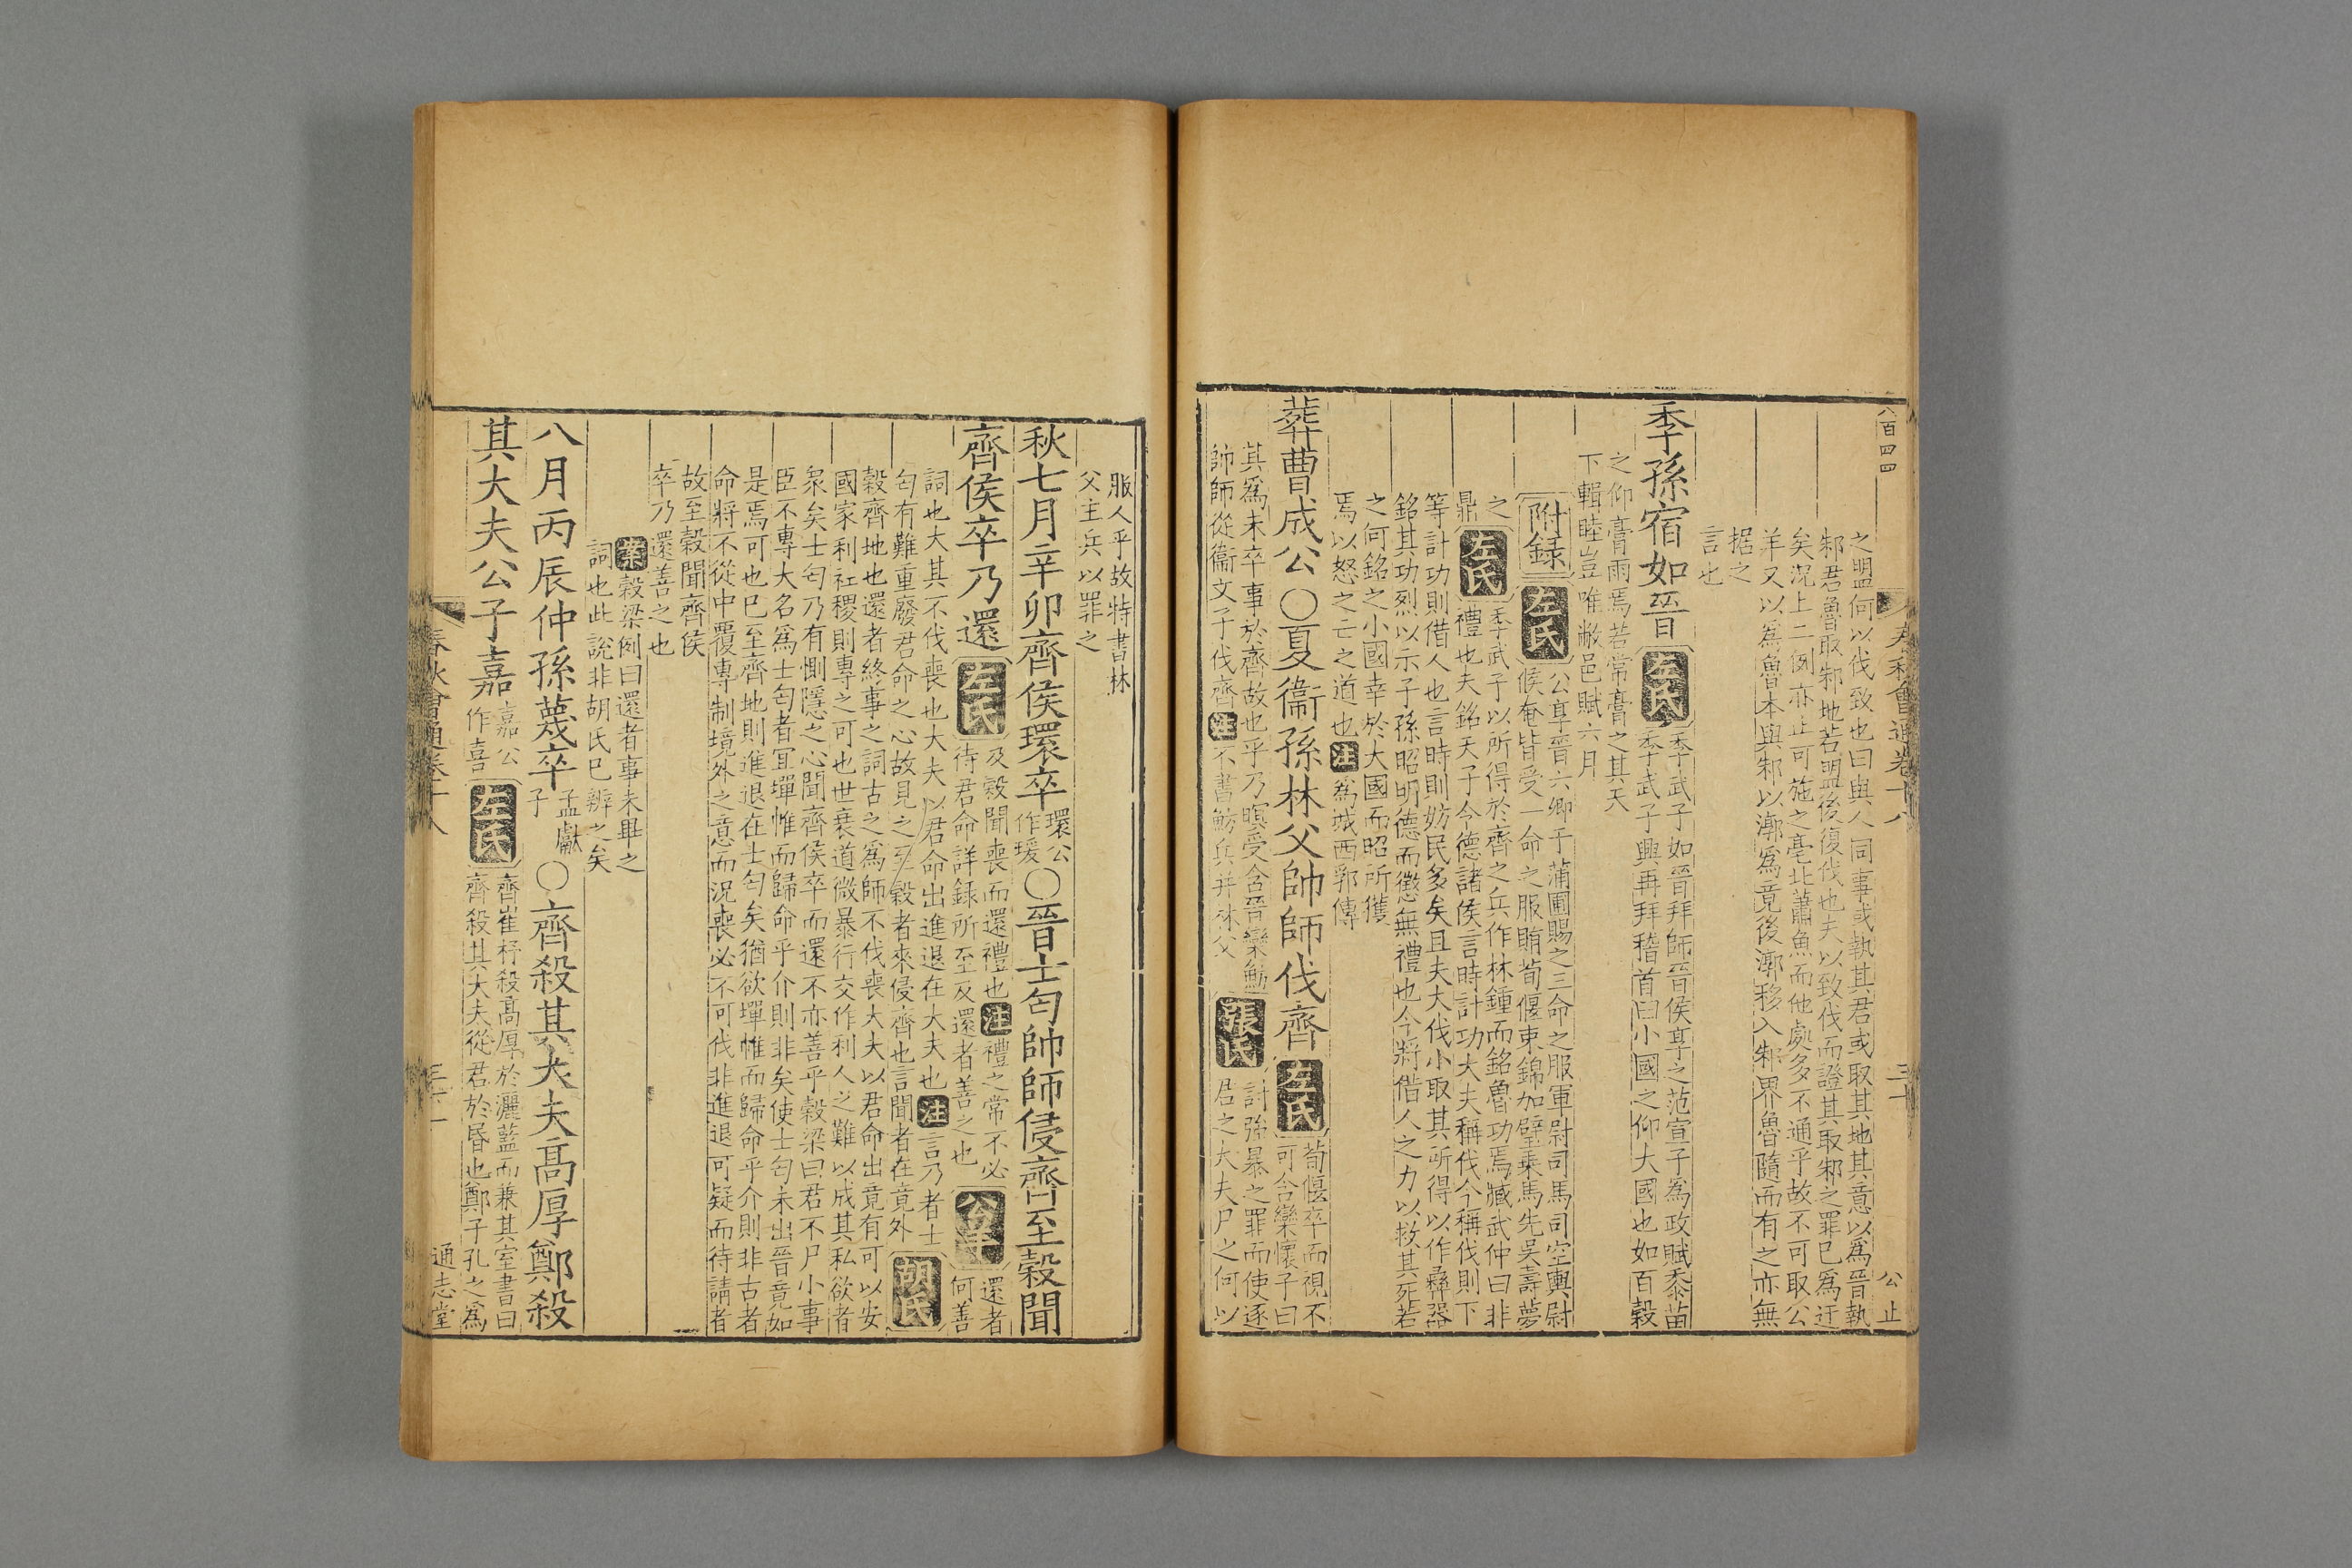 八百四四
公止
之盟何以伐致也曰與人同事或執其君或取其地其意以爲晉執
邾君魯取邾地若盟後復伐也夫以致伐而證其取邾之罪已爲迂
矣況上二例亦止可施之亳北蕭魚而他處多不通乎故不可取公
羊又以爲魯本與邾以漷爲竟後漷移入邾界魯隨而有之亦無
据之
言也
季孫宿如晉
左氏
季武子如晉拜師晉侯享之范宣子爲政賦黍苗
季武子興再拜稽首曰小國之仰大國也如百穀
之仰膏雨焉若常膏之其天
下輯睦豈唯敝邑賦六月
附録
左氏
公享晉六卿于蒲圃賜之三命之服軍尉司馬司空輿尉
候奄皆受一命之服賄荀偃束錦加璧乗馬先吳壽夢
之
鼎
左氏
季武子以所得於齊之兵作林鍾而銘魯功焉臧武仲曰非
禮也夫銘天子令德諸侯言時計功大夫稱伐今稱伐則下
等計功則借人也言時則妨民多矣且夫大伐小取其所得以作彝器
銘其功烈以示子孫昭明德而懲無禮也今將借人之力以救其死若
之何銘之小國幸於大國而昭所獲
焉以怒之亡之道也注爲城西郛傳
葬曹成公〇夏衞孫林父帥師伐齊
左氏
荀偃卒而視不
可含欒懷子曰
其爲未卒事於齊故也乎乃暝受含晉欒魴
帥師從衞文子伐齊注不書魴兵并林父
張氏
討強暴之罪而使逐
君之大夫尸之何以
春秋會通卷十八
三十
服人乎故特書林
父主兵以罪之
秋七月辛卯齊侯環卒
環公
作瑗
〇晉士匄帥師侵齊至穀聞
齊侯卒乃還
左氏
及穀聞喪而還禮也注禮之常不必
待君命詳録所至及還者善之也
公羊
還者
何善
詞也大其不伐喪也大夫以君命出進退在大夫也注言乃者士
匄有難重廢君命之心故見之至穀者來侵齊也言聞者在竟外
胡氏
穀齊地也還者終事之詞古之爲師不伐喪大夫以君命出竟有可以安
國家利社稷則專之可也世衰道微暴行交作利人之難以成其私欲者
衆矣士匄乃有惻隱之心聞齊侯卒而還不亦善乎穀梁曰君不尸小事
臣不專大名爲士匄者宜墠帷而歸命乎介則非矣使士匄未出晉竟如
是焉可也已至齊地則進退在士匄矣猶欲墠帷而歸命乎介則非古者
命將不從中覆專制境外之意而況喪必不可伐非進退可疑而待請者
故至穀聞齊侯
卒乃還善之也
案穀梁例曰還者事未畢之
詞也此說非胡氏已辨之矣
八月丙辰仲孫蔑卒
孟獻
子
〇齊殺其大夫高厚鄭殺
其大夫公子嘉
嘉公
作喜
左氏
齊崔杼殺高厚於灑藍而兼其室書曰
齊殺其大夫從君於昏也鄭子孔之爲
春秋會通卷十八
三十一
通志堂